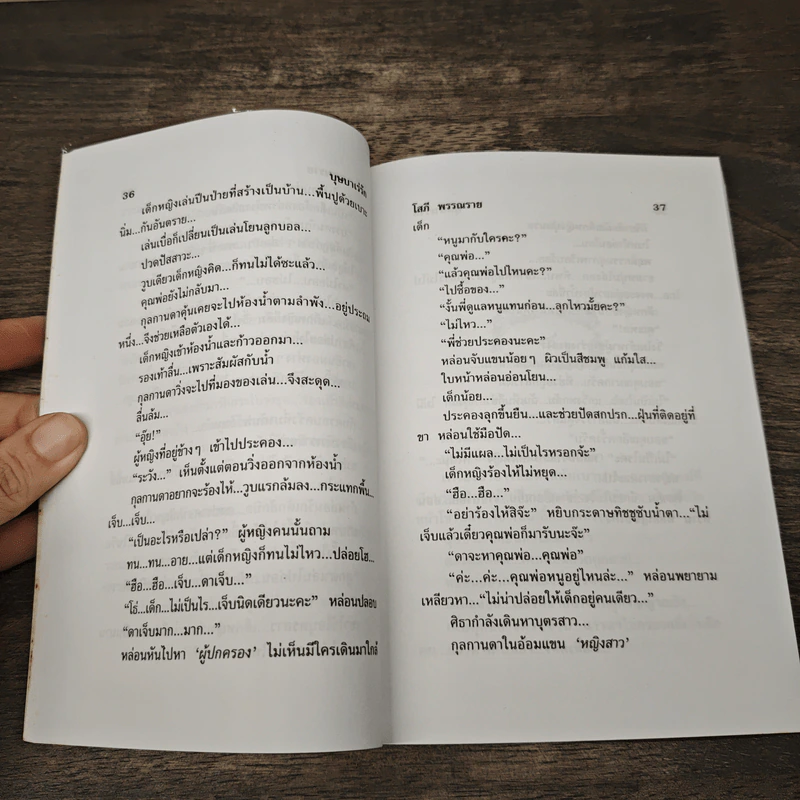 36
บุษบาเร่รัก
เด็กหญิงเล่นปีนป่ายที่สร้างเป็นบ้าน...พื้นปูด้วยเบาะ
นิ่ม...กันอันตราย...
เล่นเบื่อก็เปลี่ยนเป็นเล่นโยนลูกบอล...
ปวดปัสสาวะ...
วูบเดียวเด็กหญิงคิด...ก็ทนไม่ได้ซะแล้ว...
คุณพ่อยังไม่กลับมา...
กุลกานดาคุ้นเคยจะไปห้องน้ำตามลำพัง...อยู่ประถม
หนึ่ง...จึงช่วยเหลือตัวเองได้...
เด็กหญิงเข้าห้องน้ำและก้าวออกมา...
รองเท้าลื่น...เพราะสัมผัสกับน้ำ
กุลกานดาวิ่งจะไปที่มองของเล่น...จึงสะดุด...
ลื่นล้ม...
“อุ๊ย!”
ผู้หญิงที่อยู่ข้างๆ เข้าไปประคอง...
“ระวัง...” เห็นตั้งแต่ตอนวิ่งออกจากห้องน้ำ
กุลกานดาอยากจะร้องไห้...วูบแรกล้มลง...กระแทกพื้น...
เจ็บ...เจ็บ...
“เป็นอะไรหรือเปล่า?” ผู้หญิงคนนั้นถาม
ทน...ทน...อาย...แต่เด็กหญิงก็ทนไม่ไหว...ปล่อยโฮ...
“ฮือ...ฮือ...เจ็บ...ดาเจ็บ...”
“โธ่...เด็ก...ไม่เป็นไร...เจ็บนิดเดียวนะคะ” หล่อนปลอบ
“ดาเจ็บมาก...มาก...”
หล่อนหันไปหา ‘ผู้ปกครอง’ ไม่เห็นมีใครเดินมาใกล้
โสภี พรรณราย
37
เด็ก
“หนูมากับใครคะ?”
“คุณพ่อ...”
“แล้วคุณพ่อไปไหนคะ?”
“ไปซื้อของ...”
“งั้นพี่ดูแลหนูแทนก่อน...ลุกไหวมั้ยคะ?”
“ไม่ไหว...”
“พี่ช่วยประคองนะคะ”
หล่อนจับแขนน้อยๆ ผิวเป็นสีชมพู แก้มใส...
ใบหน้าหล่อนอ่อนโยน...
เด็กน้อย...
ประคองลุกขึ้นยืน...และช่วยปัดสกปรก...ฝุ่นที่ติดอยู่ที่
ขา หล่อนใช้มือปัด...
“ไม่มีแผล...ไม่เป็นไรหรอกจ้ะ”
เด็กหญิงร้องไห้ไม่หยุด...
“ฮือ...ฮือ...”
“อย่าร้องไห้สิจ๊ะ” หยิบกระดาษทิชชูซับน้ำตา...“ไม่
เจ็บแล้วเดี๋ยวคุณพ่อก็มารับนะจ๊ะ”
“ดาจะหาคุณพ่อ...คุณพ่อ”
“ค่ะ...ค่ะ...คุณพ่อหนูอยู่ไหนล่ะ...” หล่อนพยายาม
เหลียวหา...“ไม่น่าปล่อยให้เด็กอยู่คนเดียว...”
ศิธากำลังเดินหาบุตรสาว...
กุลกานดาในอ้อมแขน ‘หญิงสาว’